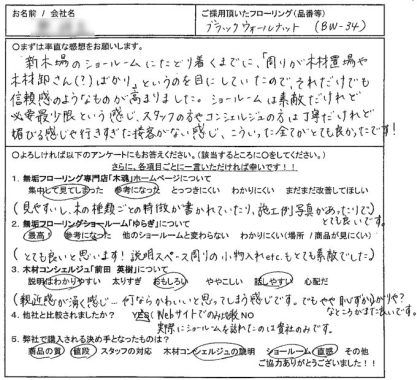 お名前 / 会社名
ご採用頂いたフローリング(品番等)
ブラックウォールナット (BW-34)
○まずは率直な感想をお願いします。
新木場のショールームにたどり着くまでに、「周りが木材置場や
木材卸さん(?)ばかり」というのを目にしていたので、それだけでも
信頼感のようなものが高まりました。ショールームは素敵だけれど
必要最少限という感じ、スタッフの方やコンシェルジュの方は丁寧だけれど
媚びる感じや行きすぎた接客がない感じ、こういった全てがとても良かったです!
○よろしければ以下のアンケートにもお答えください。(該当するところに○をしてください。)
さらに、各項目ごとに一言いただければ幸いです!!
1. 無垢フローリング専門店「木魂」ホームページについて
集中して見てしまった 参考になった とっつきにくい わかりにくい まだまだ改善してほしい
(見やすいし、木の種類ごとの特徴が書かれていたり、施工例写真があったりで)
とても良いです。
2. 無垢フローリングショールーム「ゆらぎ」について
最高! 参考になった 他のショールームと変わらない わかりにくい(場所 / 商品が見にくい)
(とても良いと思います! 説明スペース周りの小物入れetc.もとても素敵でした)
3. 木材コンシェルジュ「前田 英樹」について
説明はわかりやすい 太りすぎ おもしろい ややこしい 話しやすい 心配だ
(親近感が湧く感じ…何ならかわいいと思ってしまう感じです。でもやや恥ずかしがりや?
なところがまた良いです。
4. 他社と比較されましたか? YES(Webサイトでのみ比較 NO
実際にショールームを訪れたのは貴社のみです。
5. 弊社で購入される決め手となったものは?
商品の質 値段 スタッフの対応 木材コンシェルジュの説明 ショールーム 直感 その他
ご協力ありがとうございました!!